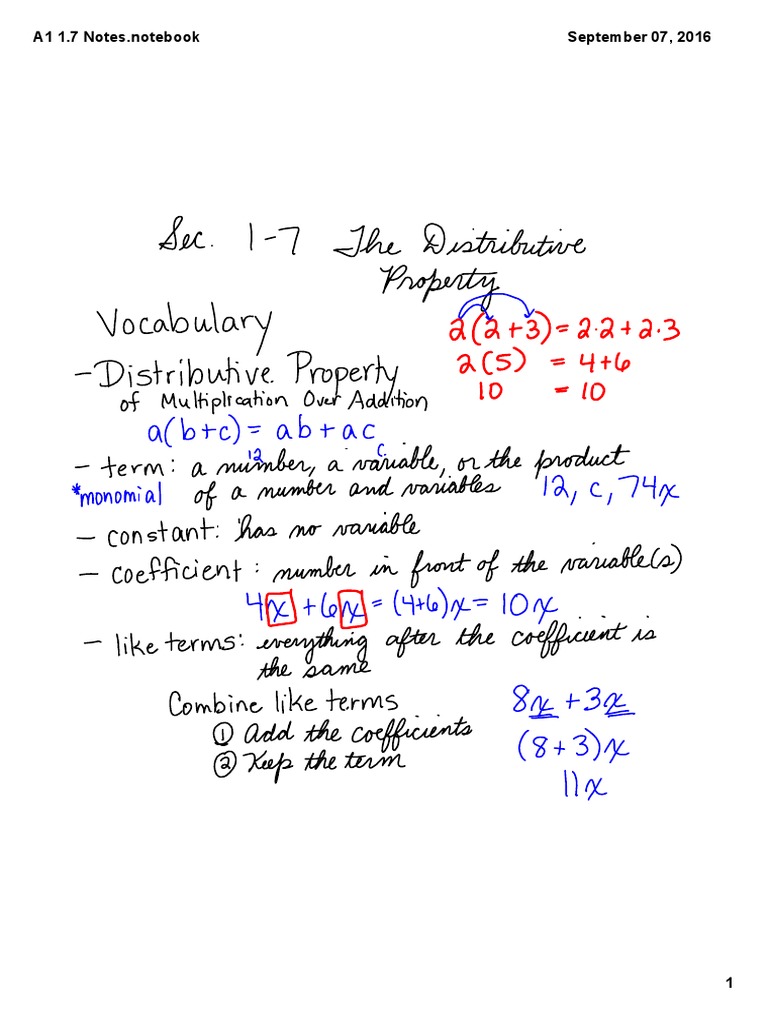 A1 1.7 Notes.notebook
September 07, 2016
Sec. 1-7 The Distributive
Property
Vocabulary
2(2+3) = 2·2+2·3
2(5) = 4+6
10 = 10
- Distributive Property
of Multiplication Over Addition
a(b+c) = ab+ac
12 c
- term: a number, a variable, or the product
*monomial of a number and variables 12, c, 74x
- constant: has no variable
- coefficient: number in front of the variable(s)
4x+6x = (4+6)x = 10x
- like terms: everything after the coefficient is
the same
Combine like terms
① Add the coefficients
② Keep the term
8x+3x
(8+3)x
11x
1